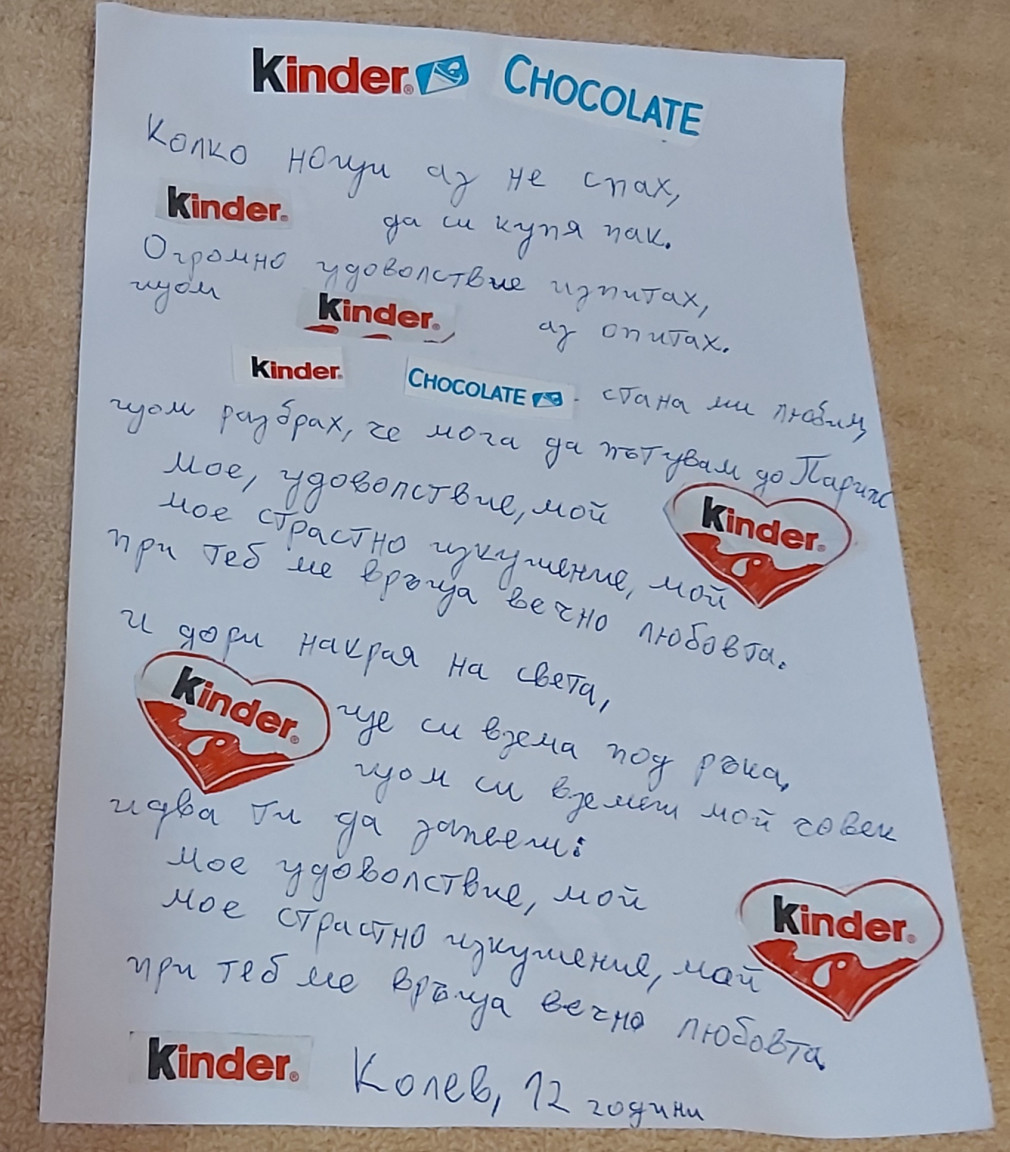 Kinder CHOCOLATE
Колко нощи аз не спах,
Kinder да си купя пак.
Огромно удоволствие изпитах,
щом Kinder аз опитах.
Kinder CHOCOLATE стана ми любим,
щом разбрах, че мога да пътувам до Париж
Мое, удоволствие, мой Kinder
мое страстно изкушение, мой
при теб ме връща вечно любовта.
И дори накрая на света,
Kinder ще си взема под ръка,
щом си вземеш мой човек
идва ти да запееш:
Мое удоволствие, мой
Мое страстно изкушение, мой Kinder
при теб ме връща вечно любовта
Kinder Колев, 12 години